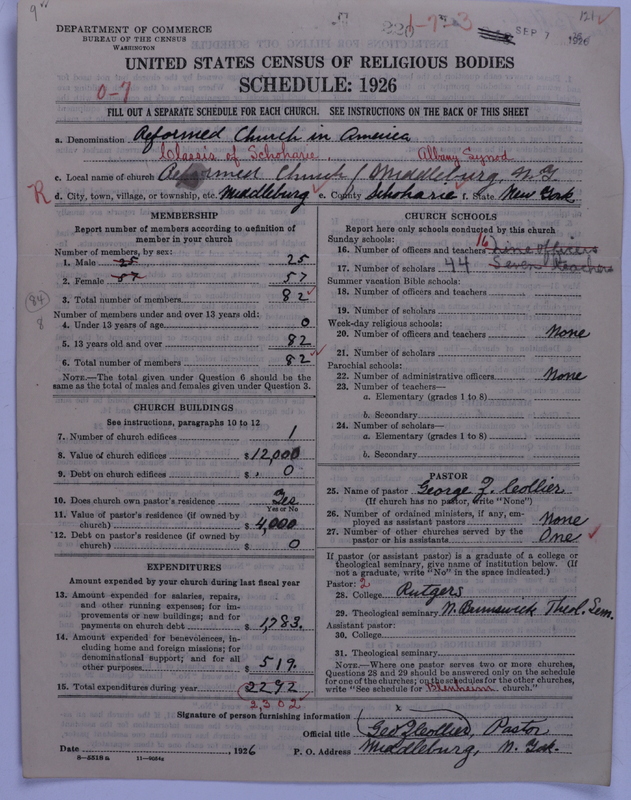 9
220
1-7-3
121 ✓
SEP 7 1926
DEPARTMENT OF COMMERCE
BUREAU OF THE CENSUS
WASHINGTON
UNITED STATES CENSUS OF RELIGIOUS BODIES
SCHEDULE: 1926
0-7
FILL OUT A SEPARATE SCHEDULE FOR EACH CHURCH. SEE INSTRUCTIONS ON THE BACK OF THIS SHEET
a. Denomination Reformed Church in America
Classis of Schoharie, Albany Synod
c. Local name of church Reformed Church / Middleburg, N.Y
R d. City, town, village, or township, etc. Middleburg ✓ e. County Schoharie ✓ f. State New York
MEMBERSHIP
Report number of members according to definition of member in your church
Number of members, by sex:
1. Male 25 25
2. Female 57 57
3. Total number of members 82 ✓
84
8
Number of members under and over 13 years old:
4. Under 13 years of age 0
5. 13 years old and over 82
6. Total number of members 82 ✓
NOTE.—The total given under Question 6 should be the
same as the total of males and females given under Question 3.
CHURCH BUILDINGS
See instructions, paragraphs 10 to 12
7. Number of church edifices 1
8. Value of church edifices $12,000
9. Debt on church edifices $ 0
10. Does church own pastor's residence Yes
Yes or No
11. Value of pastor's residence (if owned by
church) $4,000
12. Debt on pastor's residence (if owned by
church) $ 0
EXPENDITURES
Amount expended by your church during last fiscal year
13. Amount expended for salaries, repairs,
and other running expenses; for im-
provements or new buildings; and for
payment on church debt $1,783.
14. Amount expended for benevolences, in-
cluding home and foreign missions; for
denominational support; and for all
other purposes $ 519.
15. Total expenditures during year 2292
2,302 ✓
CHURCH SCHOOLS
Report here only schools conducted by this church
Sunday schools:
16. Number of officers and teachers 16 nine officers
17. Number of scholars 44 Seven teachers
Summer vacation Bible schools:
18. Number of officers and teachers
19. Number of scholars
Week-day religious schools:
20. Number of officers and teachers None
21. Number of scholars
Parochial schools:
22. Number of administrative officers None
23. Number of teachers—
a. Elementary (grades 1 to 8)
b. Secondary
24. Number of scholars—
a. Elementary (grades 1 to 8)
b. Secondary
PASTOR
25. Name of pastor George Z. Collier
(If church has no pastor, write "None")
26. Number of ordained ministers, if any, em-
ployed as assistant pastors None
27. Number of other churches served by the
pastor or his assistants One ✓
If pastor (or assistant pastor) is a graduate of a college or
theological seminary, give name of institution below. (If
not a graduate, write "No" in the space indicated.)
Pastor: 2
28. College Rutgers
29. Theological seminary N. Brunswick Theol. Sem.
Assistant pastor:
30. College
31. Theological seminary
NOTE.—Where one pastor serves two or more churches,
Questions 28 and 29 should be answered only on the schedule
for one of the churches; on the schedules for the other churches,
write "See schedule for Blenheim church."
Signature of person furnishing information x
Official title Geo Z Collier, Pastor
Date , 1926 P. O. Address Middleburg, N. York.
8-5518 a 11-9084z